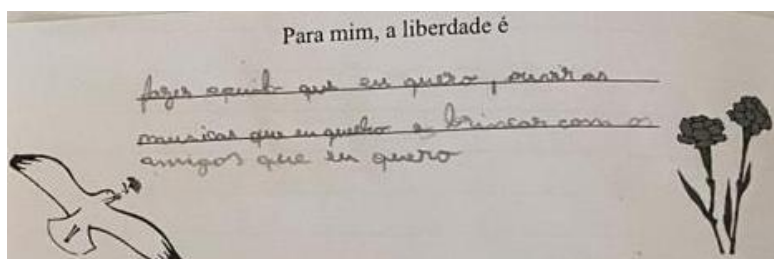 Para mim, a liberdade é
fazer aquilo que eu quero, ouvir as
musicas que eu quero e brincar com os
amigos que eu quero